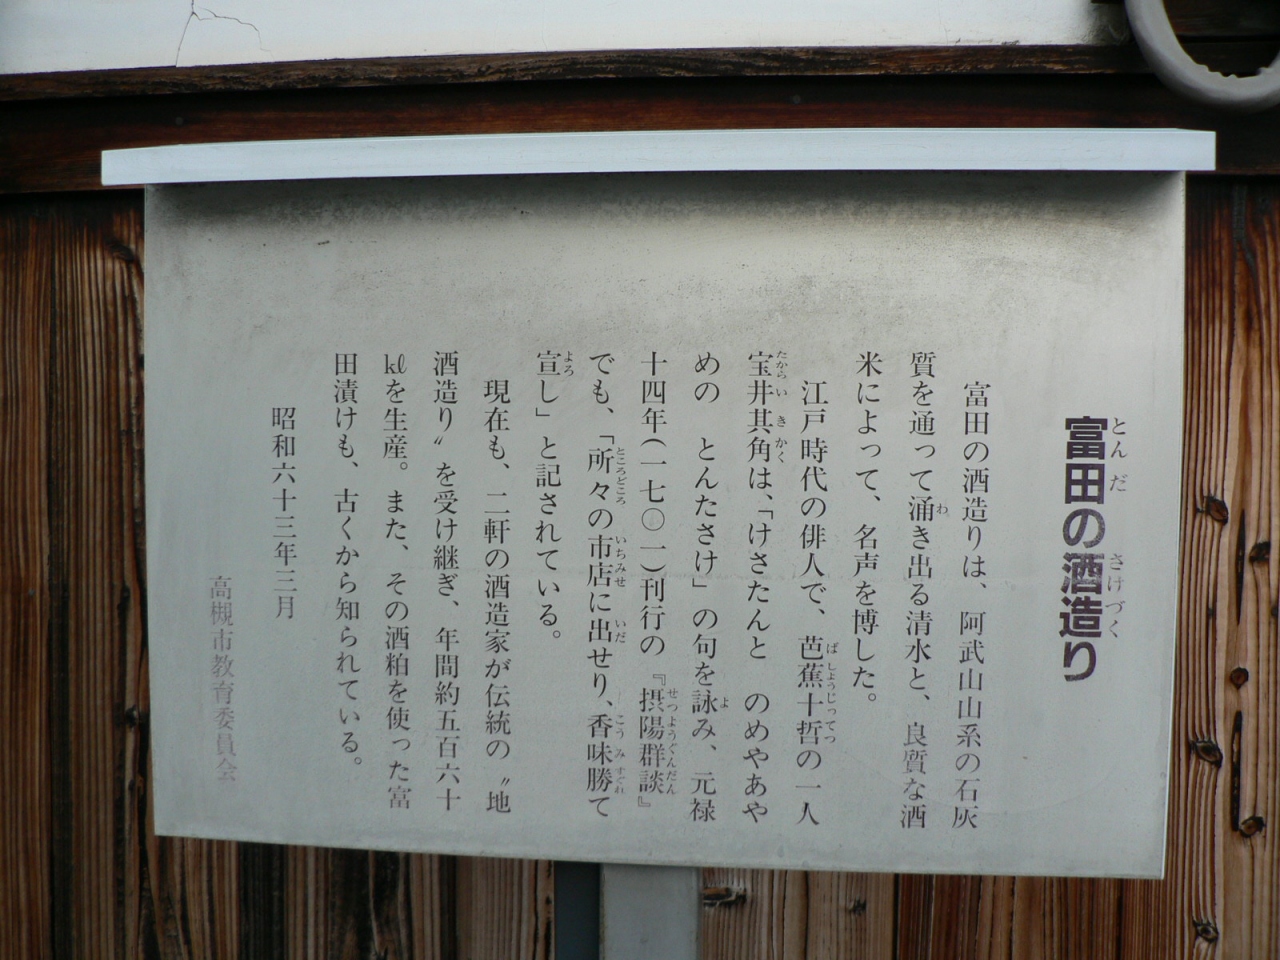 富田の酒造り
富田の酒造りは、阿武山山系の石灰
質を通って涌き出る清水と、良質な酒
米によって、名声を博した。
江戸時代の俳人で、芭蕉十哲の一人
宝井其角は、「けさたんと　のめやあや
めの　とんたさけ」の句を詠み、元禄
十四年(一七〇一)刊行の『摂陽群談』
でも、「所々の市店に出せり、香味勝て
宣し」と記されている。
現在も、二軒の酒造家が伝統の〝地
酒造り〟を受け継ぎ、年間約五百六十
㎘を生産。また、その酒粕を使った富
田漬けも、古くから知られている。
昭和六十三年三月
高槻市教育委員会